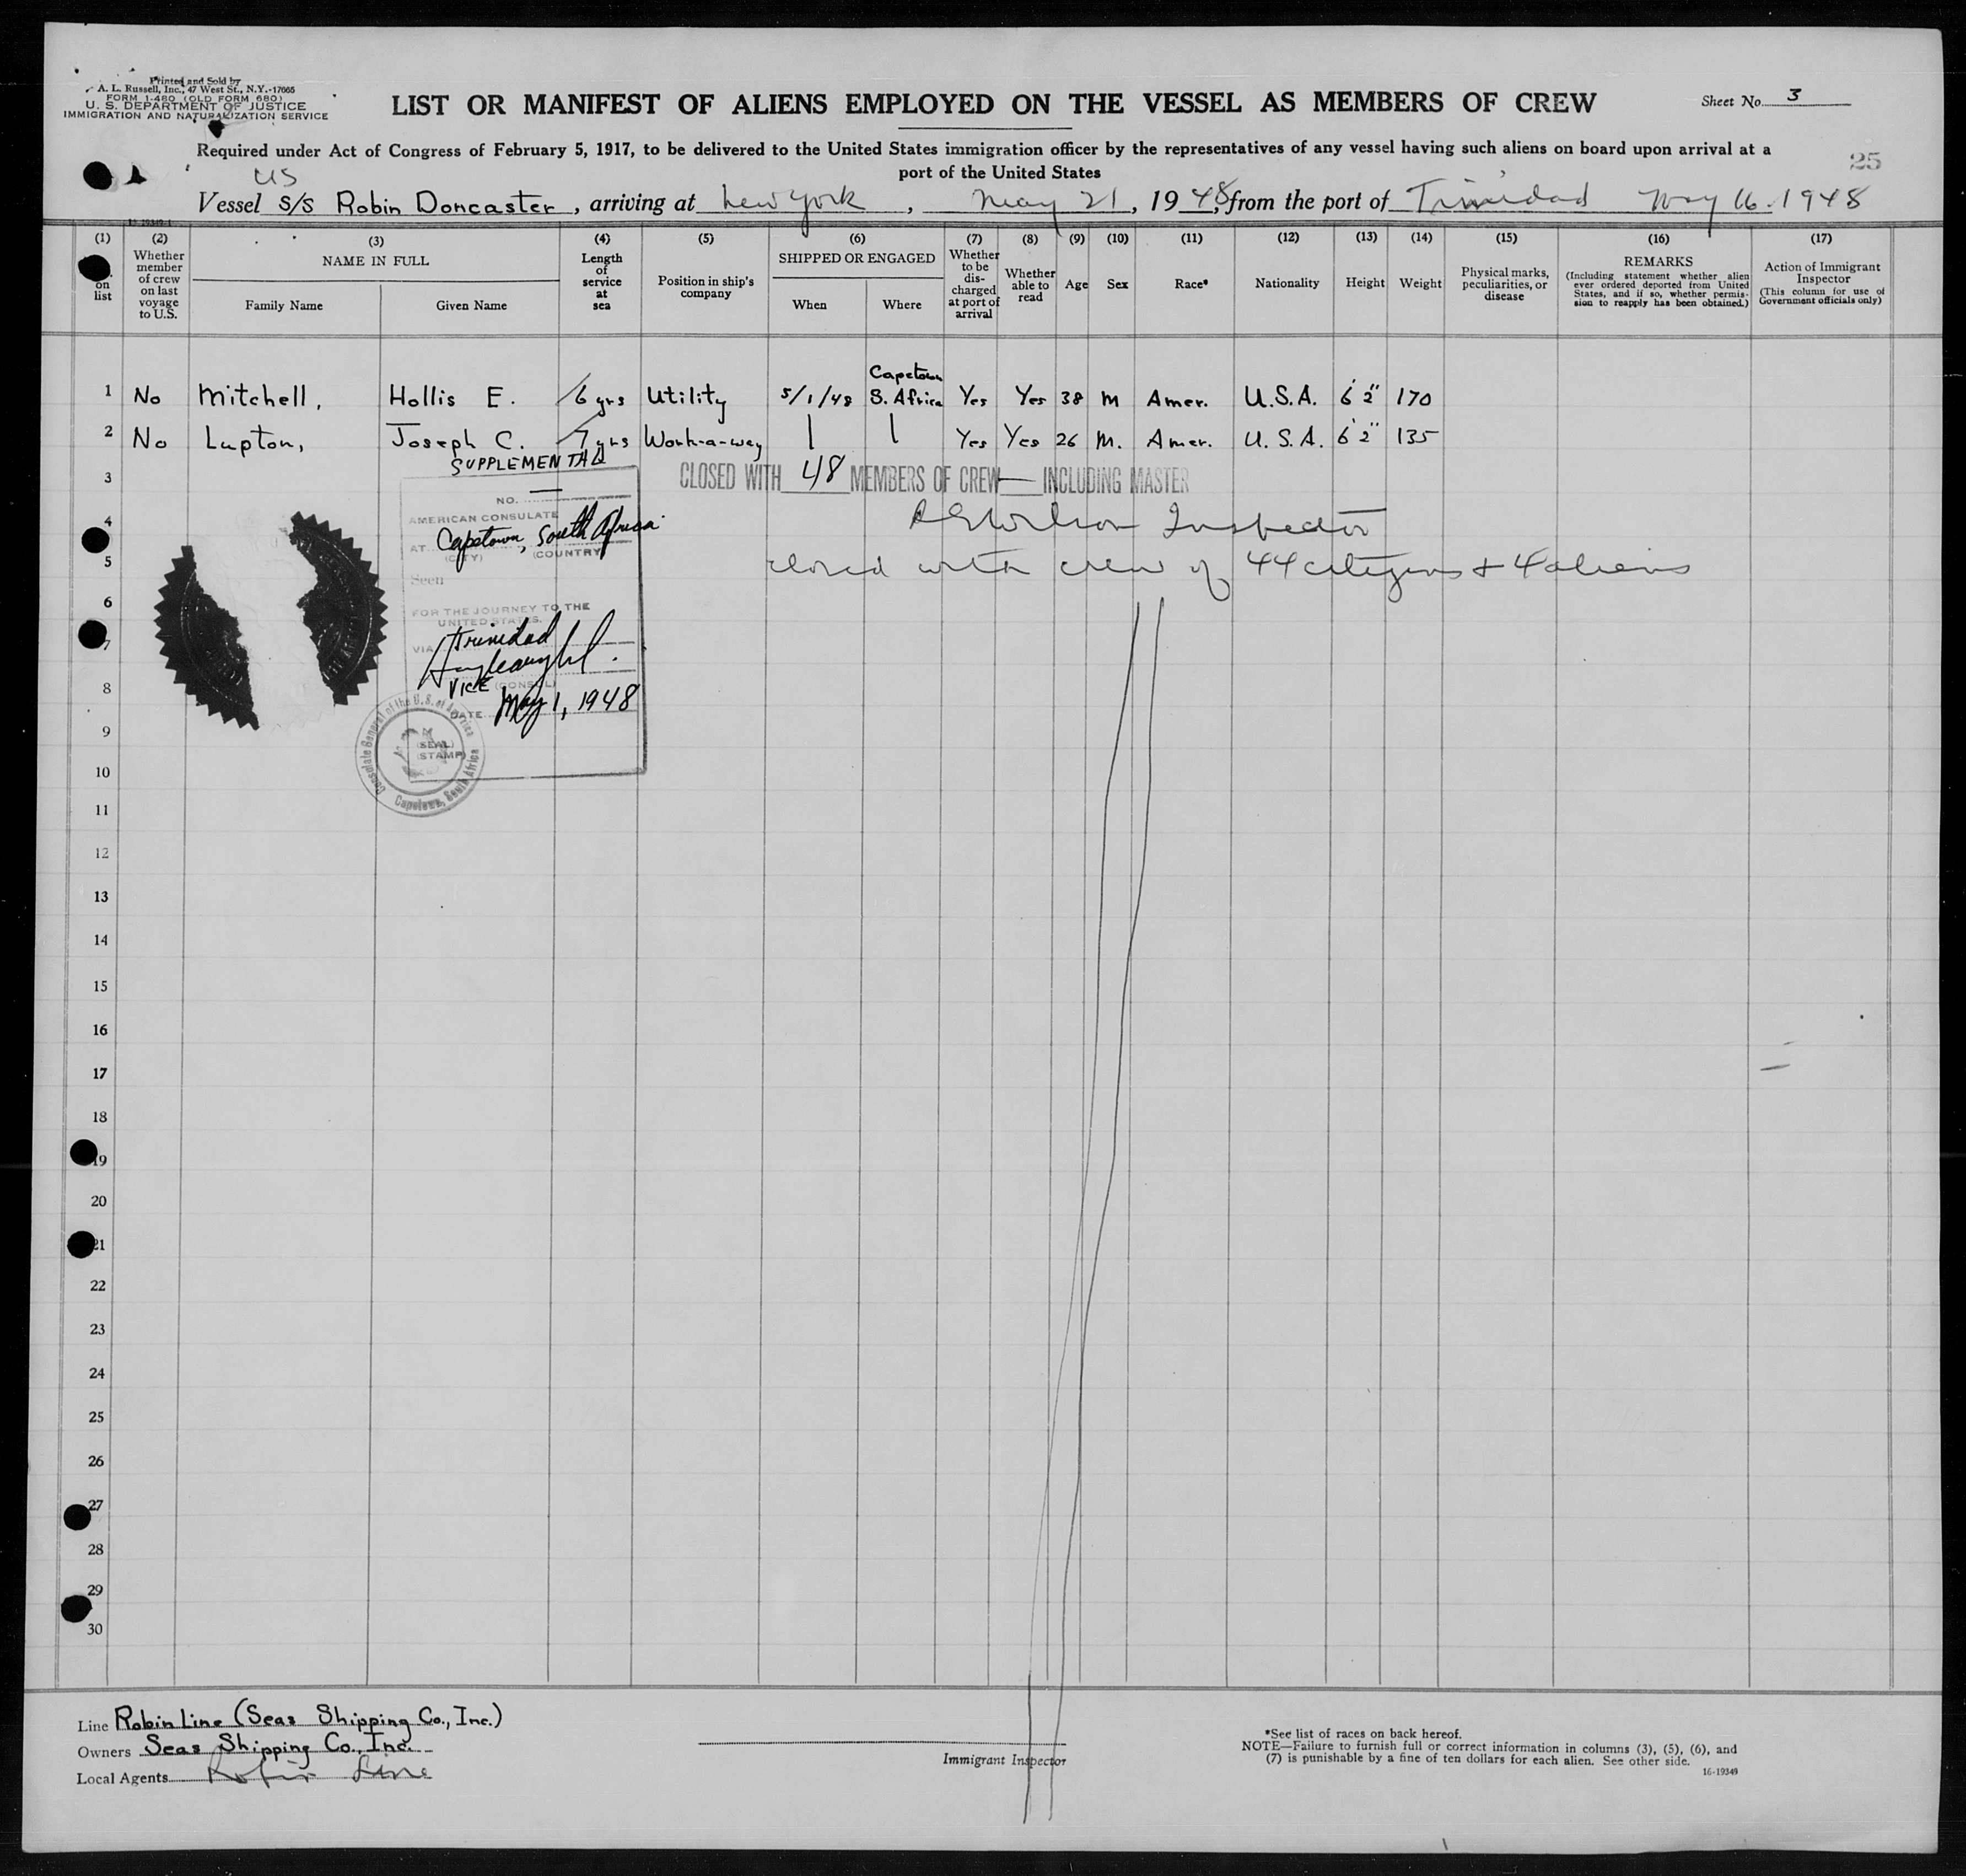 Printed and Sold by
A. L. Russell, Inc., 47 West St., N.Y.-17665
FORM I-480 (OLD FORM 680)
U. S. DEPARTMENT OF JUSTICE
IMMIGRATION AND NATURALIZATION SERVICE
LIST OR MANIFEST OF ALIENS EMPLOYED ON THE VESSEL AS MEMBERS OF CREW
Sheet No. 3
Required under Act of Congress of February 5, 1917, to be delivered to the United States immigration officer by the representatives of any vessel having such aliens on board upon arrival at a
port of the United States
25
US
Vessel S/S Robin Doncaster, arriving at New York, May 21, 1948, from the port of Trinidad May 16. 1948
(1) (2) (3) (4) (5) (6) (7) (8) (9) (10) (11) (12) (13) (14) (15) (16) (17)
on list
Whether member of crew on last voyage to U.S.
NAME IN FULL
Family Name
Given Name
Length of service at sea
Position in ship's company
SHIPPED OR ENGAGED
When
Where
Whether to be discharged at port of arrival
Whether able to read
Age
Sex
Race*
Nationality
Height
Weight
Physical marks, peculiarities, or disease
REMARKS
(Including statement whether alien ever ordered deported from United States, and if so, whether permission to reapply has been obtained.)
Action of Immigrant Inspector
(This column for use of Government officials only)
1 No Mitchell, Hollis E. 6 yrs Utility 5/1/48 Capetown S. Africa Yes Yes 38 M Amer. U.S.A. 6'2" 170
2 No Lupton, Joseph C. 7 yrs Work-a-way Yes Yes 26 M. Amer. U.S.A. 6'2" 135
SUPPLEMENTAL
3
CLOSED WITH 48 MEMBERS OF CREW — INCLUDING MASTER
NO.
AMERICAN CONSULATE
4
Inspector
AT Capetown, South Africa
(CITY) (COUNTRY)
5
closed with crew of 44 citizens + 4 aliens
Seen
6
FOR THE JOURNEY TO THE
UNITED STATES.
7
VIA Trinidad
8
VICE (CONSUL)
DATE May 1, 1948
9
(SEAL)
(STAMP)
Consulate General of the U. S. of America
Capetown, South Africa
10
11
12
13
14
15
16
17
18
19
20
21
22
23
24
25
26
27
28
29
30
Line Robin Line (Seas Shipping Co., Inc.)
Owners Seas Shipping Co., Inc.
Local Agents Robin Line
Immigrant Inspector
*See list of races on back hereof.
NOTE—Failure to furnish full or correct information in columns (3), (5), (6), and
(7) is punishable by a fine of ten dollars for each alien. See other side.
16-19349